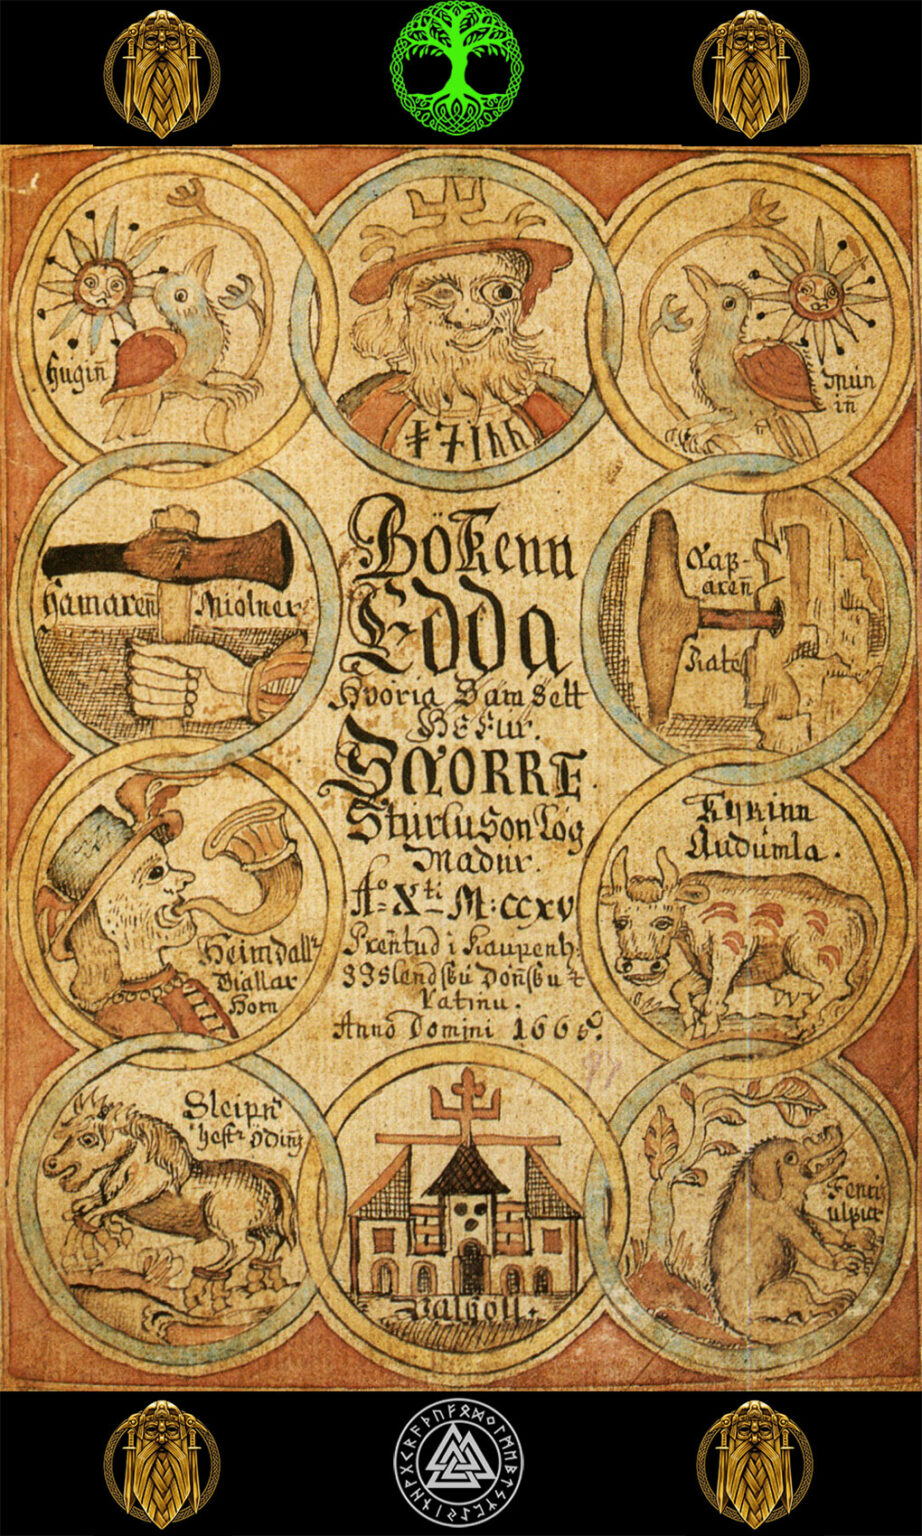 Hugin̄
Mún
in̄
Hamaren̄ Miolner
Bökenn
Edda
Hvoria Samsett
Hefur.
SNORRE
Sturluson Lög
Madur.
Aº Xti M:ccxv
Prentud i Kaupenh:
Islendsku Dönsku &
Latinu.
Anno Domini 1665.
Nafar-
aren̄
Rate
Heimdall
Giallar
Horn
Kyrinn
Audúmla.
Sleipn̄
hestr Odins
Valholl.
Fenris
ulfur